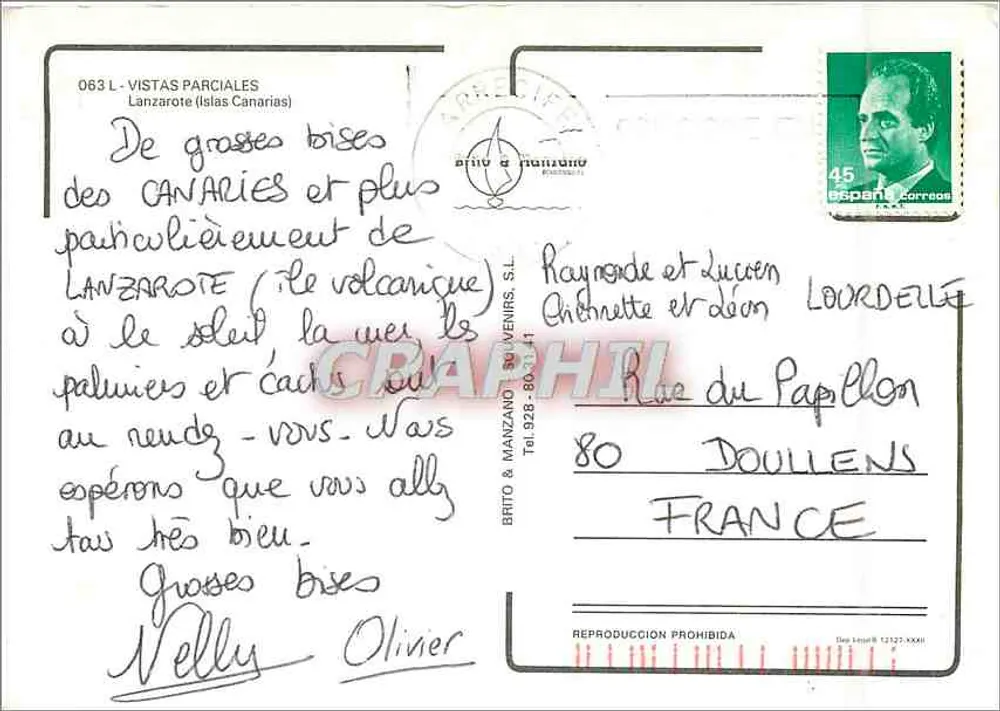 063 L - VISTAS PARCIALES
Lanzarote (Islas Canarias)
De grosses bises
des CANARIES et plus
particulièrement de
LANZAROTE (île volcanique)
où le soleil, la mer, les
palmiers et cactus sont
au rendez-vous. Nous
espérons que vous allez
tous très bien.
Grosses bises
Nelly Olivier
BRITO & MANZANO SOUVENIRS, S.L.
Tel. 928 - 80 31 41
ARRECIFE
Brito & Manzano
45
españa correos
Raymonde et Lucien
et Léon LOURDELLE
Rue du Papillon
80 DOULLENS
FRANCE
REPRODUCCION PROHIBIDA
Dep. Legal B. 12127-XXXII
CRAPHIL